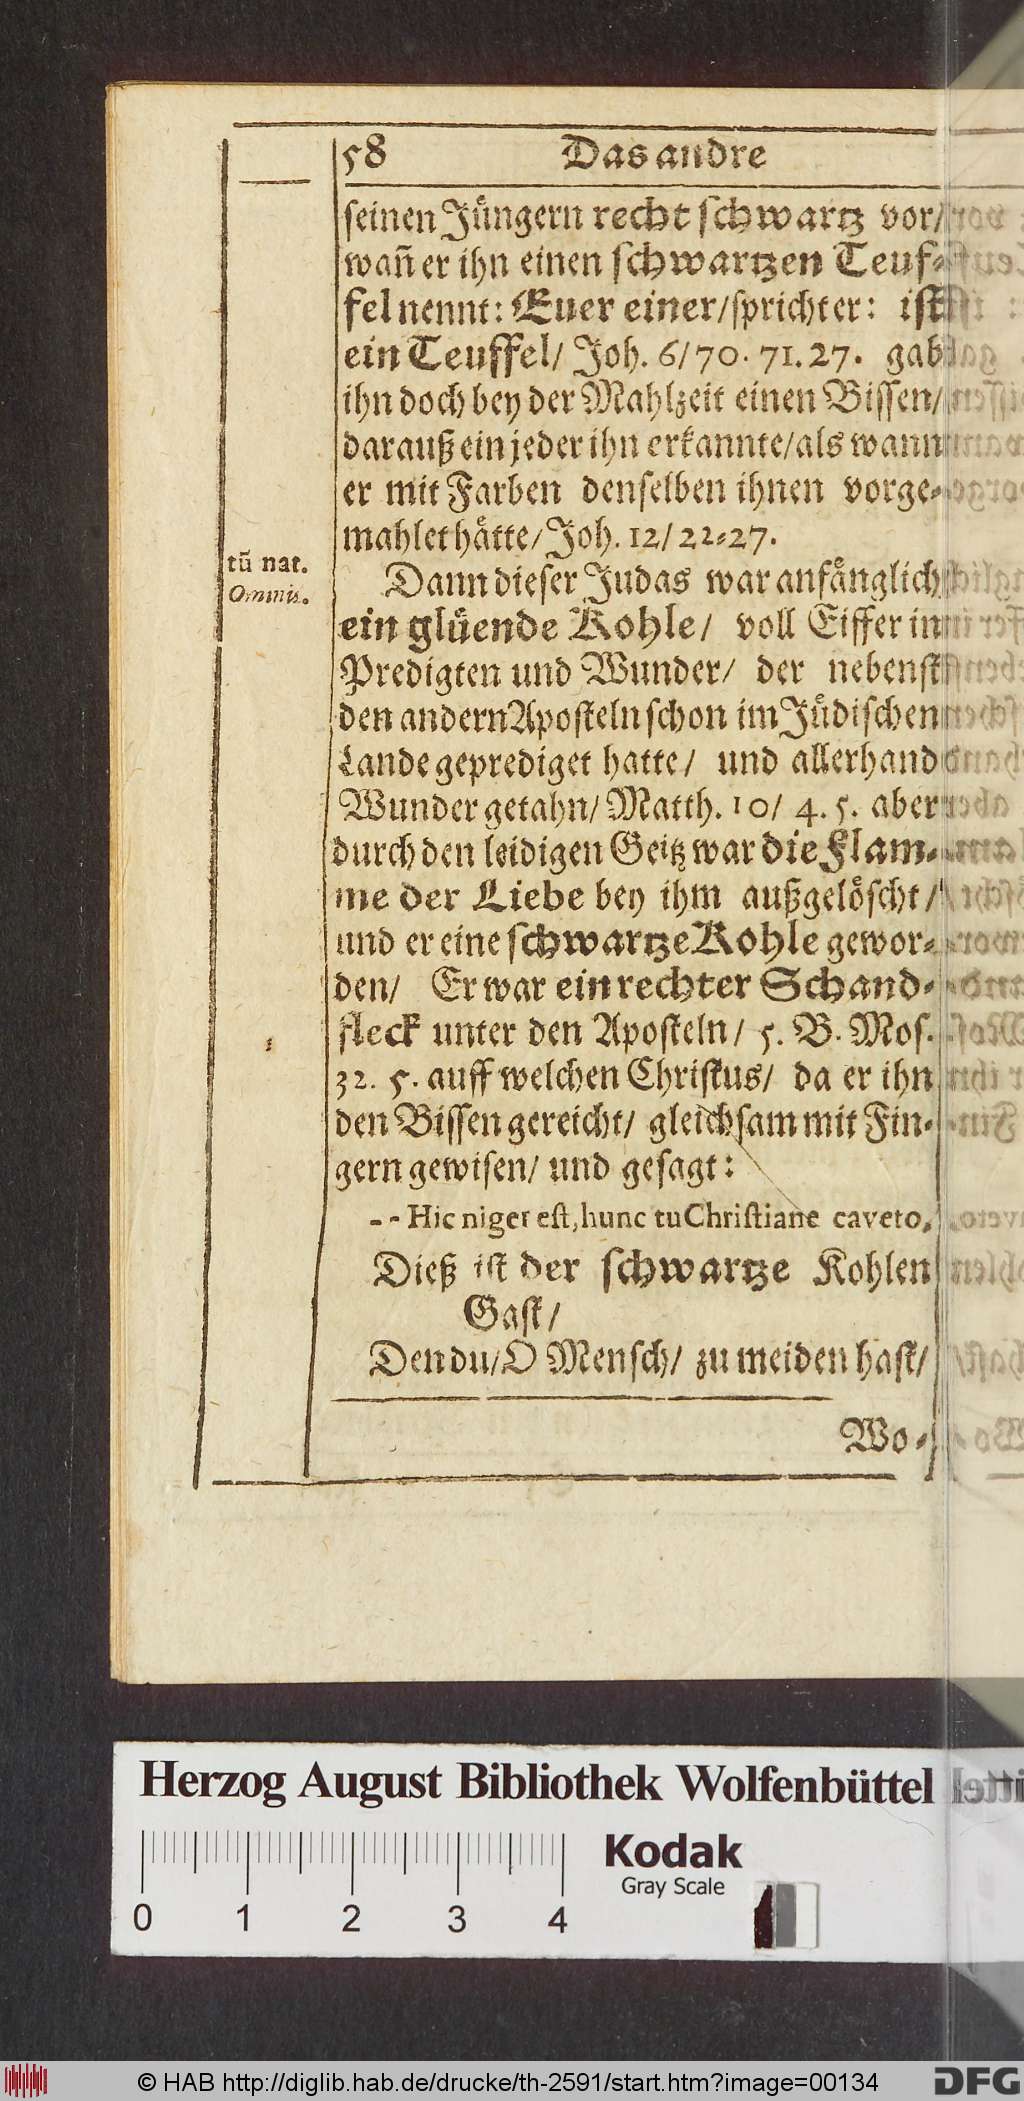 58 Das andre
seinen Jüngern recht schwartz vor/
wañ er ihn einen schwartzen Teuf-
fel nennt: Euer einer/ spricht er: ist
ein Teuffel/ Joh. 6/70. 71. 27. gab
ihn doch bey der Mahlzeit einen Bissen/
darauß ein jeder ihn erkannte/ als wann
er mit Farben denselben ihnen vorge-
mahlet hätte/ Joh. 12/22-27.
tũ nat.
Ommis.
Dann dieser Judas war anfänglich
ein glüende Kohle/ voll Eiffer in
Predigten und Wunder/ der nebenst
den andern Aposteln schon im Jüdischen
Lande geprediget hatte/ und allerhand
Wunder getahn/ Matth. 10/ 4. 5. aber
durch den leidigen Geitz war die Flam-
me der Liebe bey ihm außgelöscht/
und er eine schwartze Kohle gewor-
den/ Er war ein rechter Schand-
fleck unter den Aposteln/ 5. B. Mos.
32. 5. auff welchen Christus/ da er ihn
den Bissen gereicht/ gleichsam mit Fin-
gern gewisen/ und gesagt:
-- Hic niger est, hunc tu Christiane caveto,
Dieß ist der schwartze Kohlen
Gast/
Den du/ O Mensch/ zu meiden hast/
Wo-
Herzog August Bibliothek Wolfenbüttel
Kodak
Gray Scale
0 1 2 3 4
© HAB http://diglib.hab.de/drucke/th-2591/start.htm?image=00134
DFG